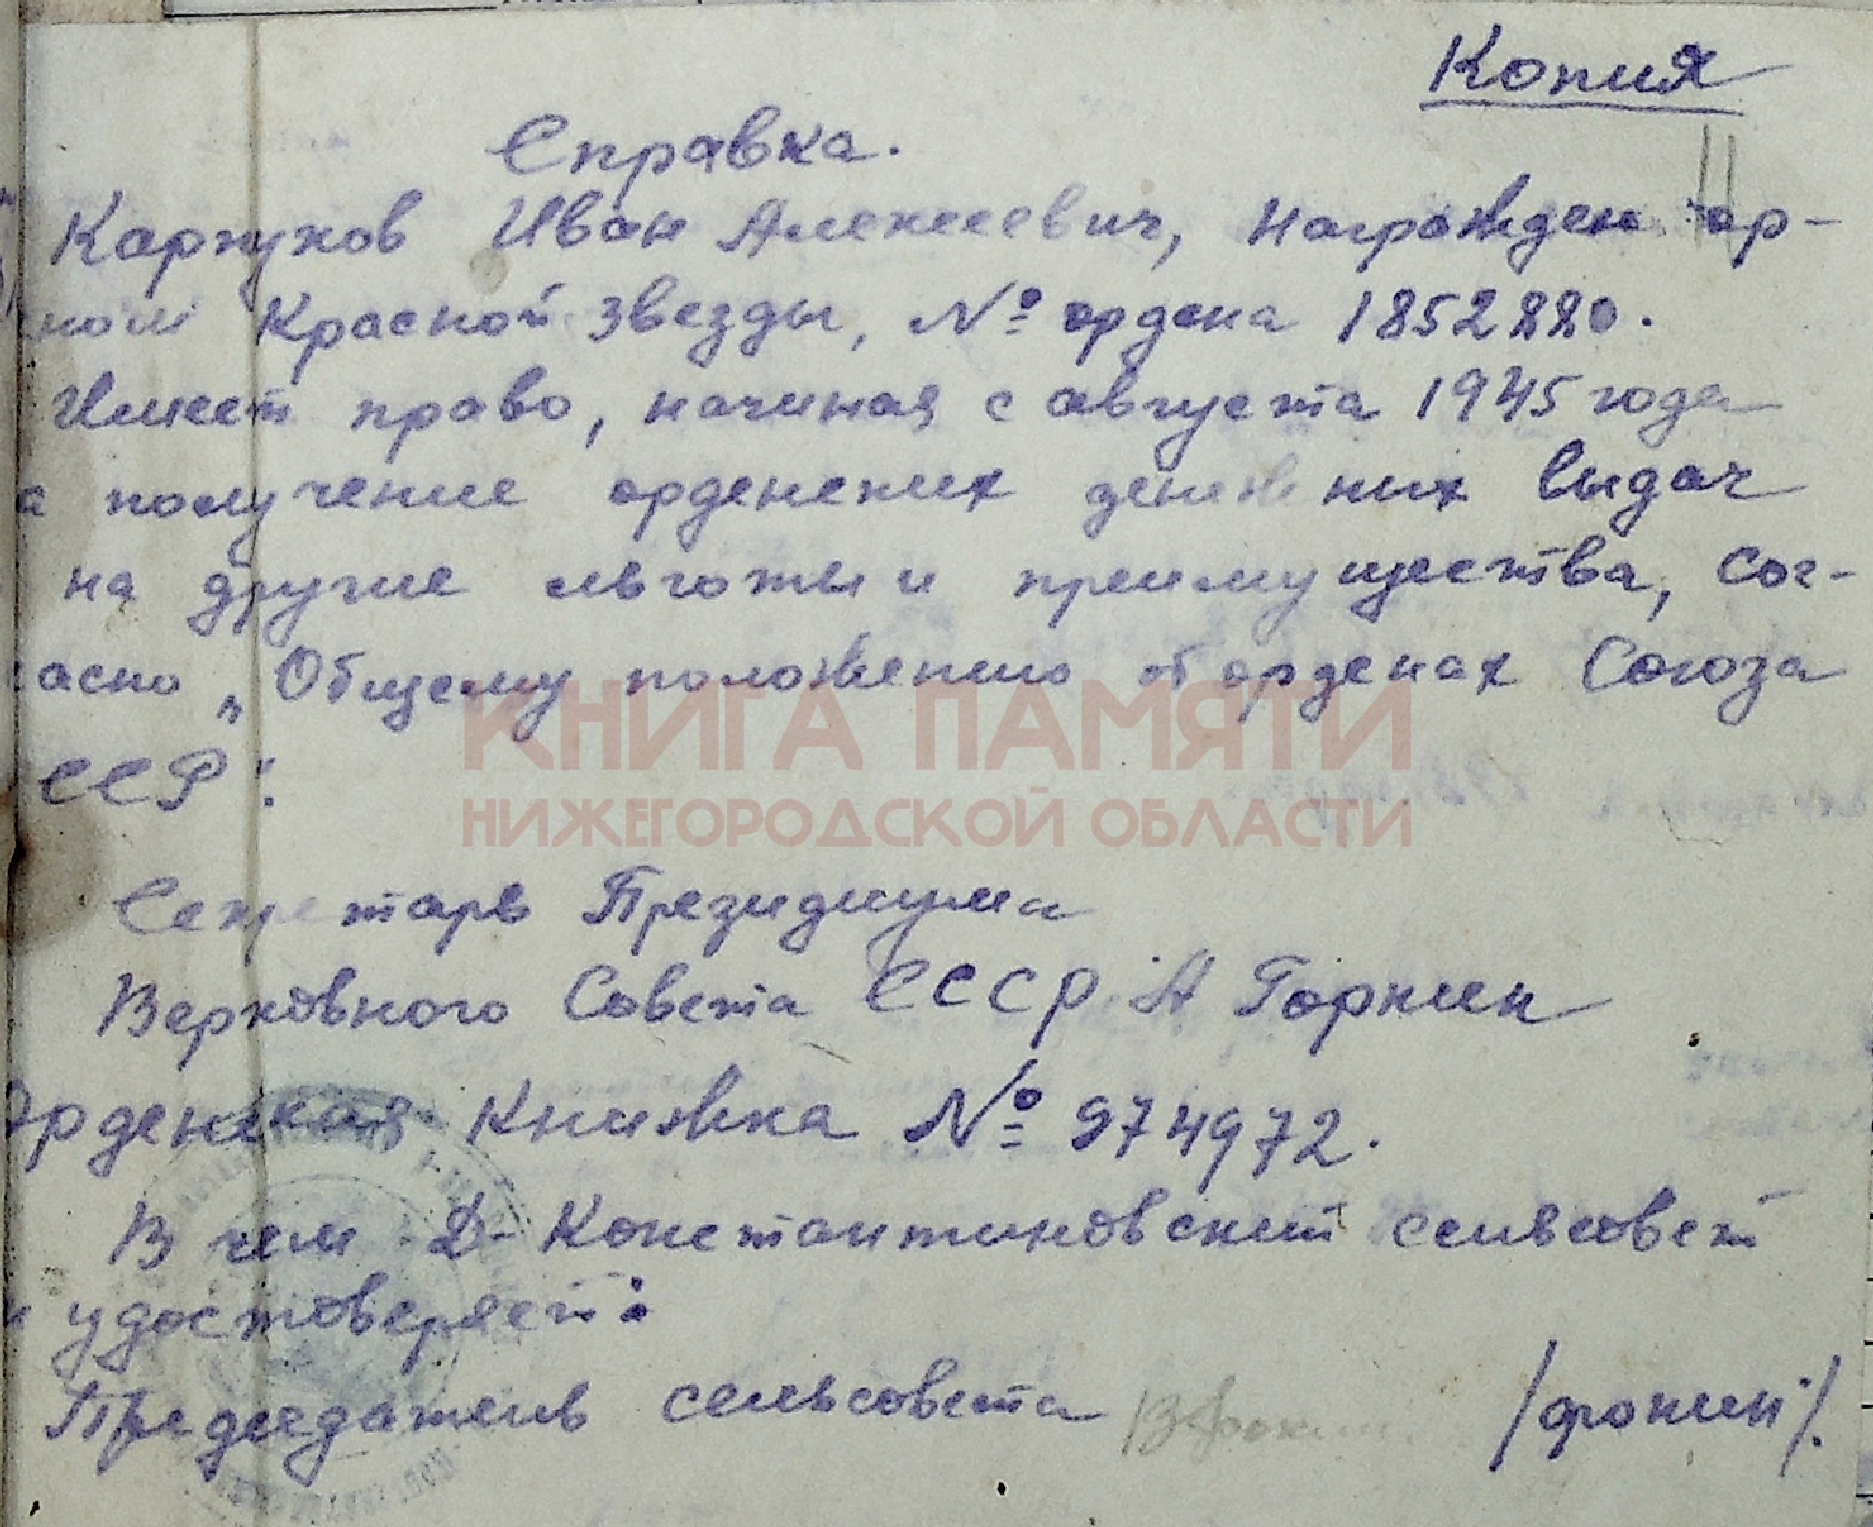 Копия
Справка.
Карпухов Иван Алексеевич, награжден ор-
ном Красной звезды, № ордена 1852220.
Имеет право, начиная с августа 1945 года
а получение орденских денежних выдач
на другие льготы и преимущества, сог-
ласно „Общему положению об орденах Союза
ССР".
КНИГА ПАМЯТИ
НИЖЕГОРОДСКОЙ ОБЛАСТИ
Секретарь Президиума
Верховного Совета СССР. А Горкин
Орденская книжка № 974972.
В чем Д-Константиновский сельсовет
и удостоверяет:
Председатель сельсовета /фокин/.